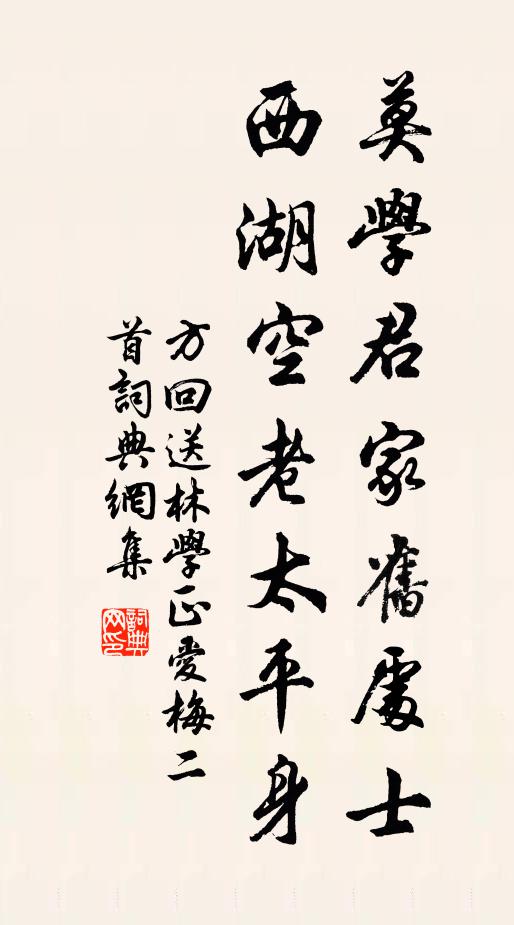 莫學君家舊處士
西湖空老太平身
方回送林學正愛梅二
首詞典網集
詞典
网印